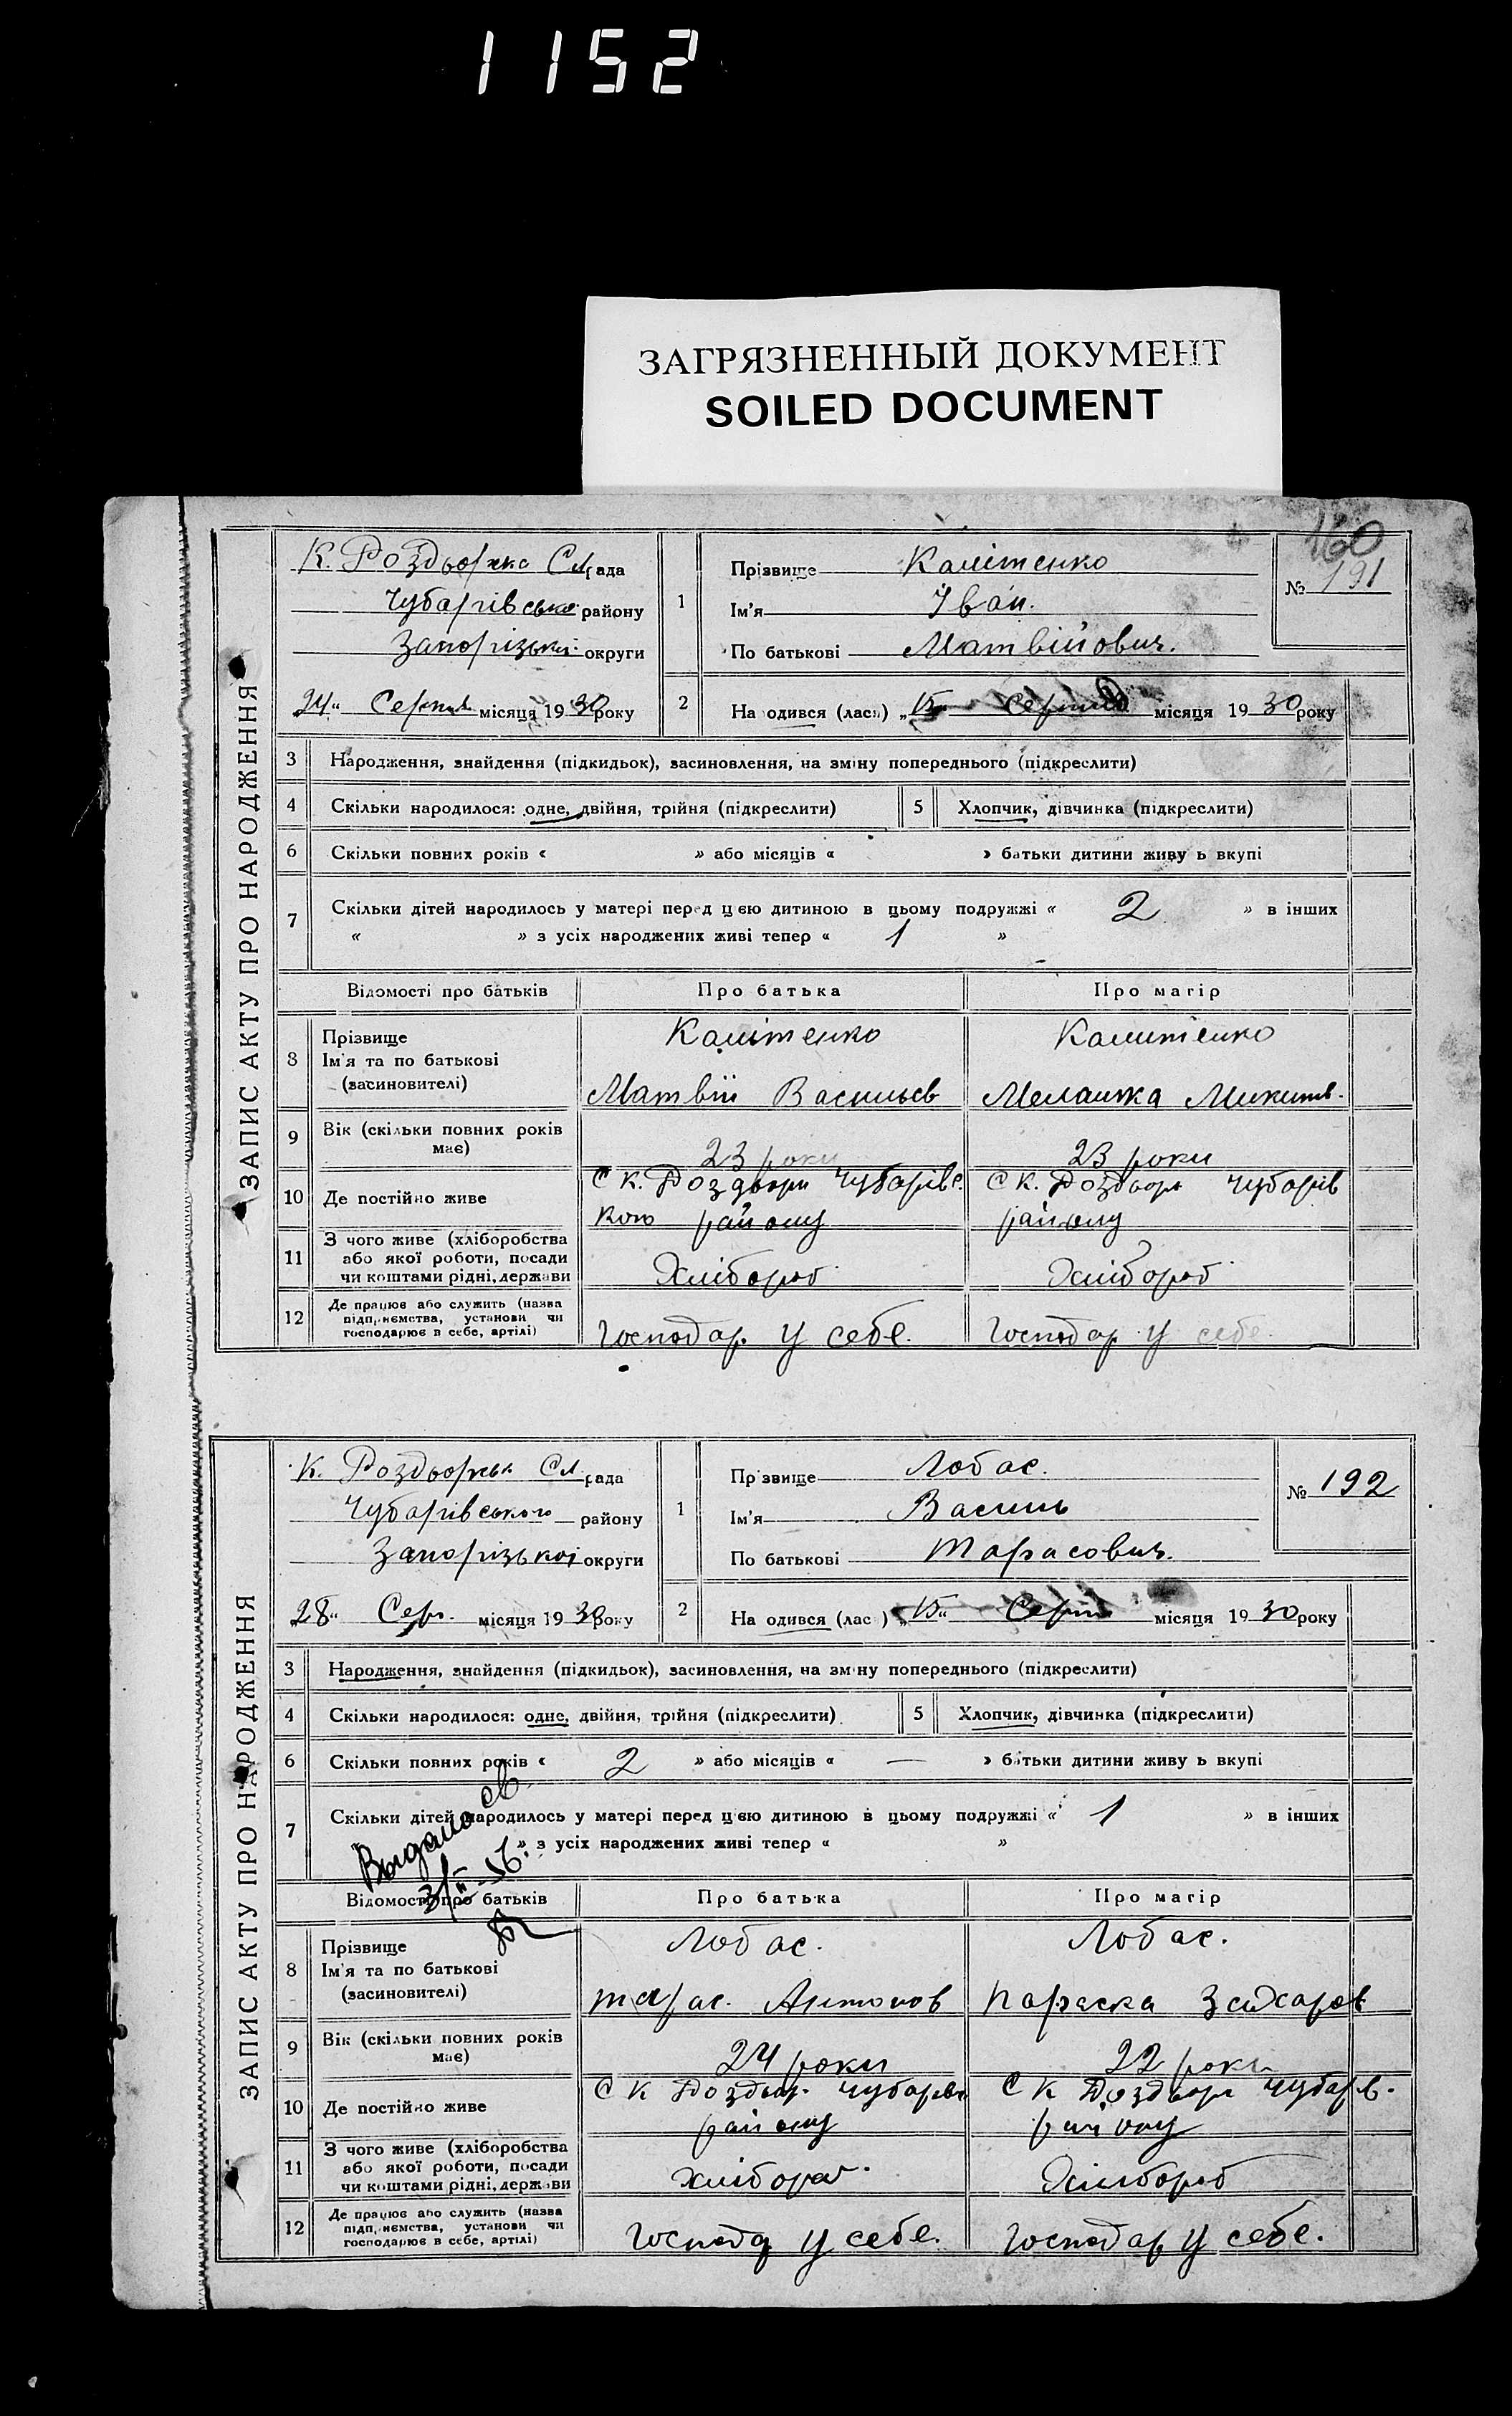 1152
ЗАГРЯЗНЕННЫЙ ДОКУМЕНТ
SOILED DOCUMENT
160
ЗАПИС АКТУ ПРО НАРОДЖЕННЯ
К. Роздорська Сл. рада
Чубарівсько району
Запорізької округи
24 " Серпня місяця 1930 року
1
Прізвище Калітенко
Ім'я Іван.
По батькові Матвійович.
№ 191
2
На одився (лась) „ 15 " Серпня місяця 1930 року
3 Народження, знайдення (підкидьок), засиновлення, на зміну попереднього (підкреслити)
4 Скільки народилося: одне, двійня, трійня (підкреслити) 5 Хлопчик, дівчинка (підкреслити)
6 Скільки повних років « » або місяців « » батьки дитини живу ь вкупі
7 Скільки дітей народилось у матері перед цією дитиною в цьому подружжі « 2 » в інших
« » з усіх народжених живі тепер « 1 »
Відомості про батьків Про батька Про матір
8 Прізвище
Ім'я та по батькові
(засиновителі)
Калітенко Калитенко
Матвій Васильєв Мелашка Микитів.
9 Вік (скільки повних років має) 23 роки 23 роки
10 Де постійно живе
С К. Роздори Чубарівс. С К. Роздори Чубарів
кого району району
11 З чого живе (хліборобства
або якої роботи, посади
чи коштами рідні, держави
Хлібороб Хлібороб
12 Де працює або служить (назва
підприємства, установи чи
господарює в себе, артілі)
Господар у себе. Господар у себе.
ЗАПИС АКТУ ПРО НАРОДЖЕННЯ
К. Роздорськ Сл. рада
Чубарівського району
Запорізької округи
„28" Серп. місяця 1930 року
1
Прізвище Лобас.
Ім'я Василь
По батькові Тарасович.
№ 192
2
На одився (лас ) „ 15 " Серпня місяця 1930 року
3 Народження, знайдення (підкидьок), засиновлення, на зміну попереднього (підкреслити)
4 Скільки народилося: одне, двійня, трійня (підкреслити) 5 Хлопчик, дівчинка (підкреслити)
6 Скільки повних років « 2 » або місяців « — » батьки дитини живу ь вкупі
7 Скільки дітей народилось у матері перед цією дитиною в цьому подружжі « 1 » в інших
» з усіх народжених живі тепер « »
Выдано св.
Відомості про батьків Про батька Про матір
8 Прізвище
Ім'я та по батькові
(засиновителі)
Лобас. Лобас.
Тарас. Антонов Параска Захаров
9 Вік (скільки повних років має) 24 роки 22 роки
10 Де постійно живе
С К Роздор. Чубарівс С К Роздори Чубарів.
району району
11 З чого живе (хліборобства
або якої роботи, посади
чи коштами рідні, держави
Хлібороб. Хлібороб
12 Де працює або служить (назва
підприємства, установи чи
господарює в себе, артілі)
Господар у себе. Господар у себе.